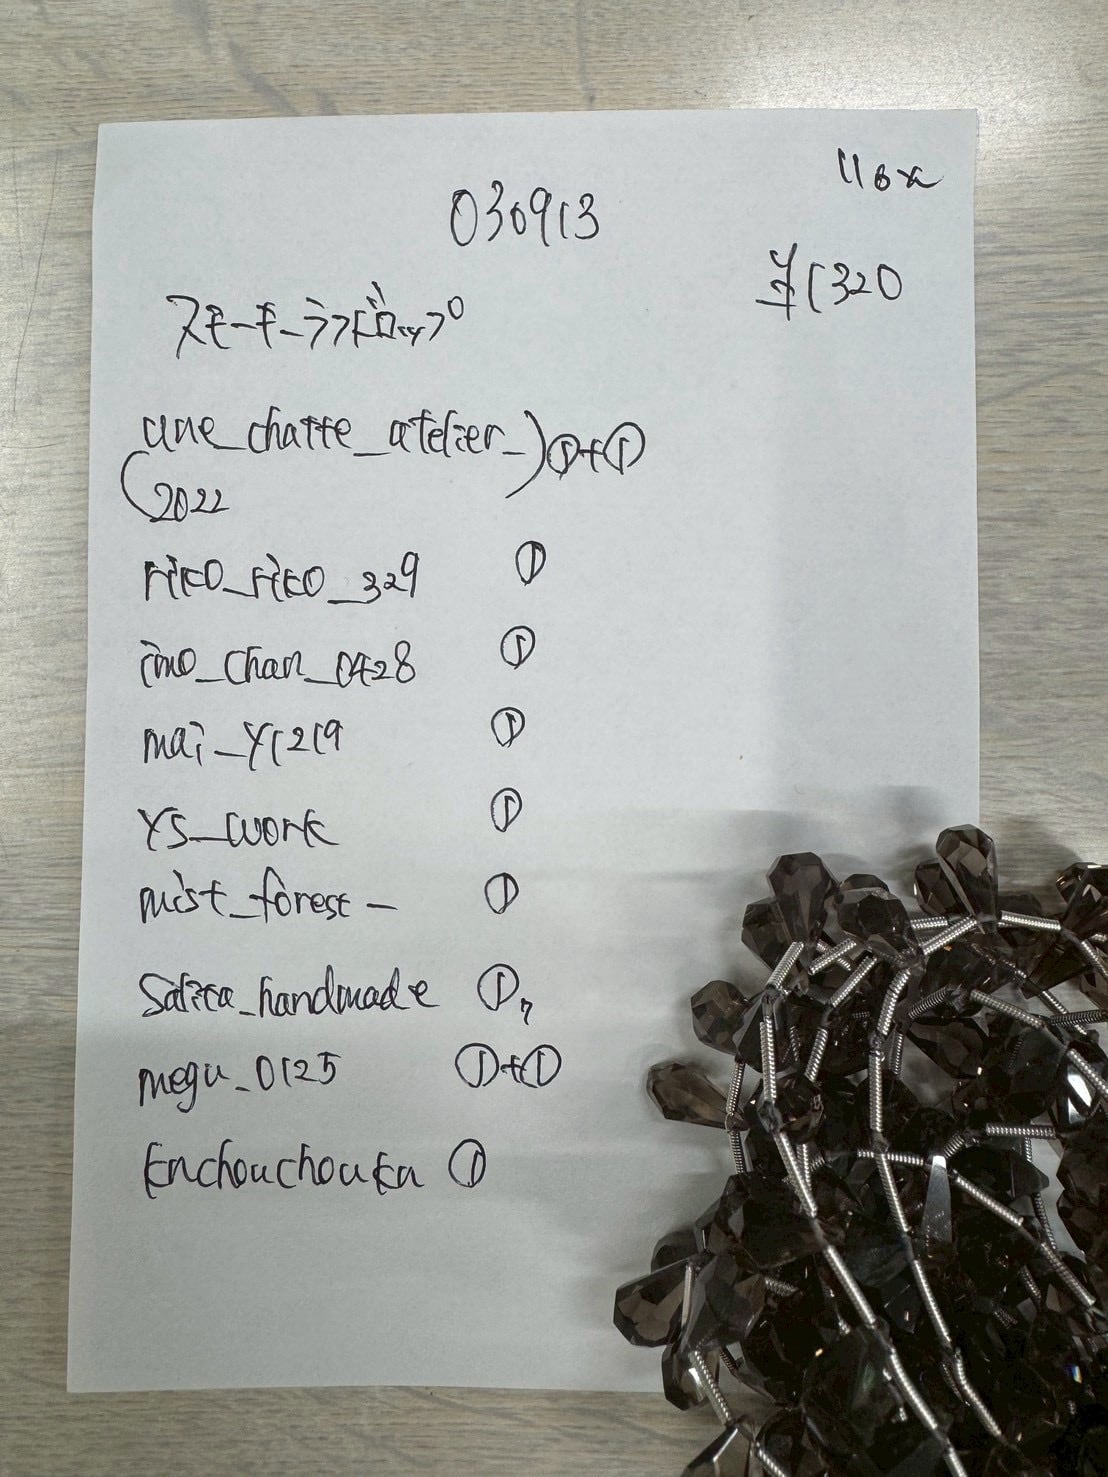 116x
030913
¥1320
スモーキーラフドロップ
une_chatte_atelier_) ①+①
(2022
riko_riko_329 ①
imo_chan_0428 ①
mai_y1219 ①
YS_work ①
mist_forest_ ①
Salica_handmade ①
megu_0125 ①+①
kachouchouka ①